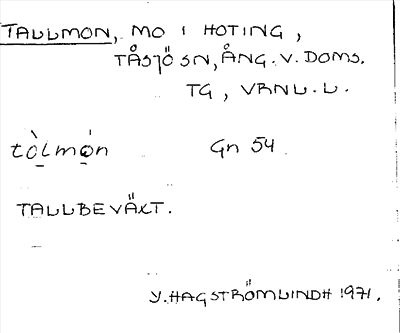 TALLMON, MO I HOTING,
TÅSJÖ SN, ÅNG. V. DOMS.
TG, VRNL. L.
tòlmón Gn 54
TALLBEVÄXT.
Y. HAGSTRÖMLINDH 1971.